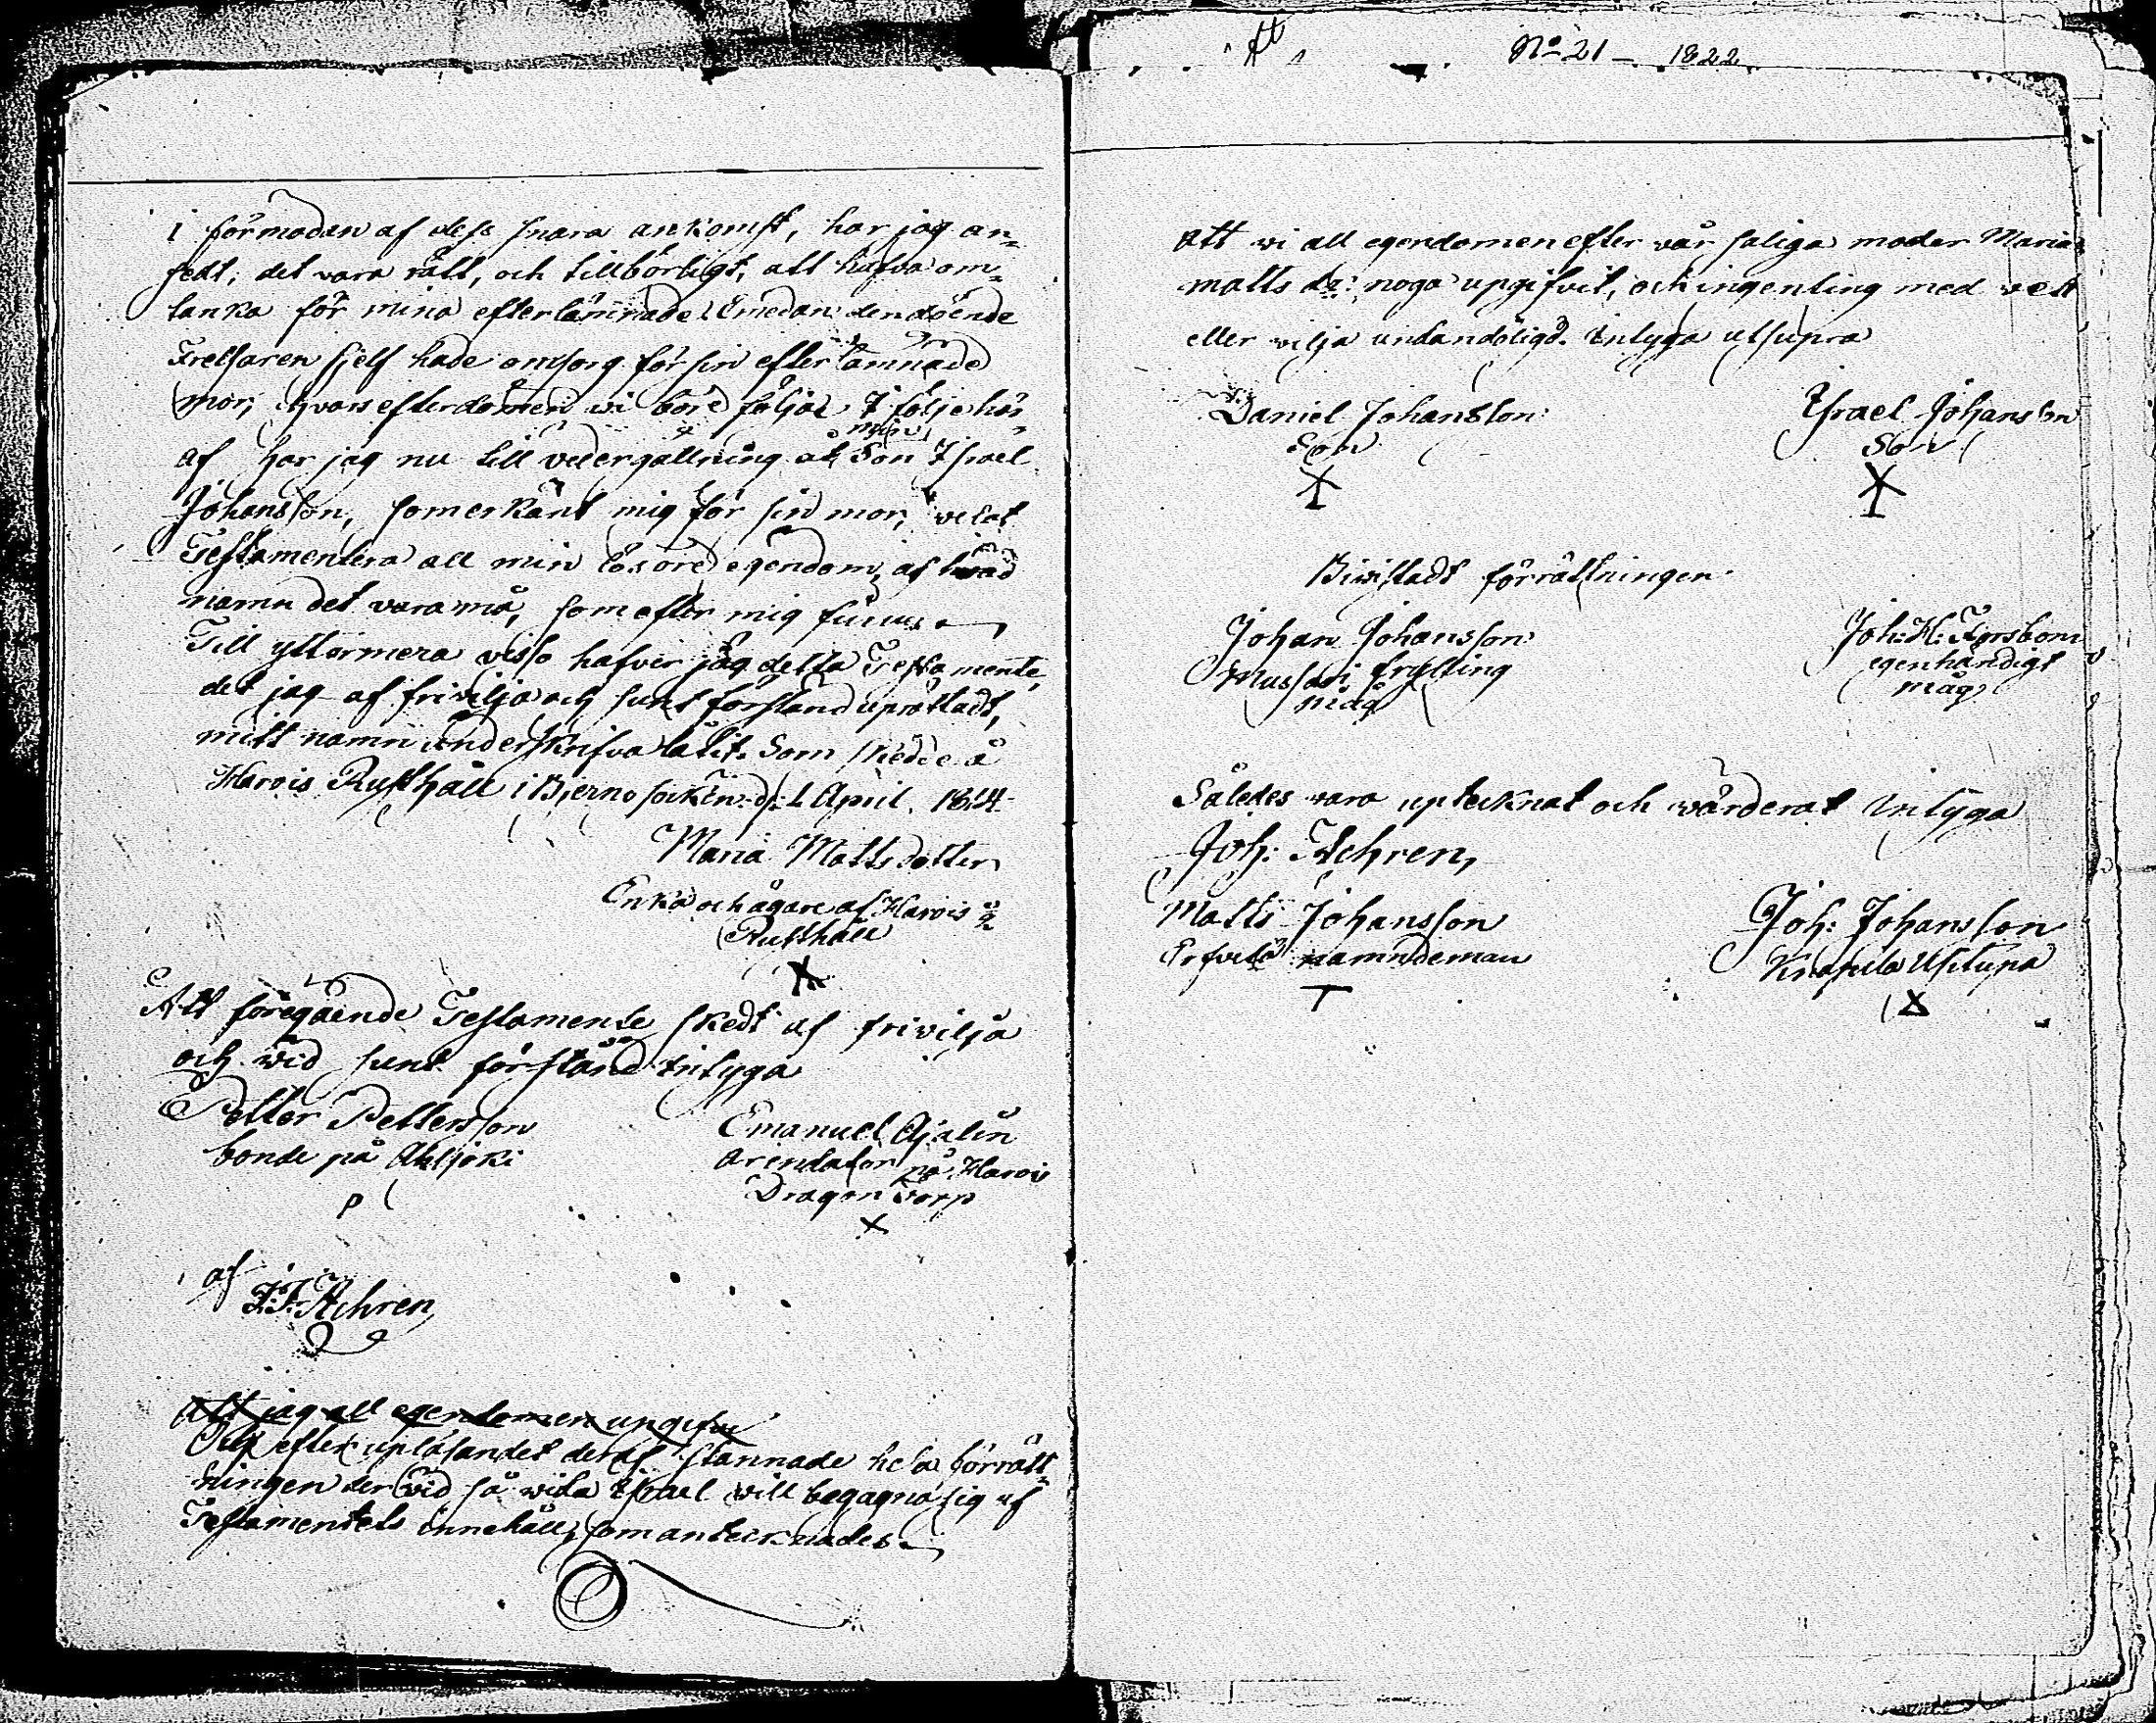 i förmodan af dess snara ankomst, har jag an=
sedt, det vara rätt, och tillbörligt, att hafva om=
tanka för mina efterlämnade. Emedan den döende
Frelsaren sjelf hade omsorg för sin efterlämnade
mor, hvars efterdömen vi böre följa. I följe här=
af har jag nu till vedergällning åt min Son Israel
Johansson, som erkänt mig för sin mor, velat
Testamentera all min lösöre egendom, af hvad
namn det vara må, som efter mig finnes
Till yttermera visso hafver jag detta Testamente,
det jag af fri vilja och sunt förstånd uprättadt,
mitt namn underskrifva låtit. Som skedde å
Harois Rusthåll i Bjerno socken d. 1 April. 1814
Maria Matts dotter
Enka och ägare af Harois ½
Rusthåll
X
Att föregående Testamente skedt af fri vilja
och wid sunt förstånd intyga
Petter Pettersson
bonde på Ahljoki
P
Emanuel Ajalin
Arendator på Harois
Dragon Torp
X
af
J. F. Achren
Att jag all egendomen ungifvit
Och efter upläsandet deraf stannade hela förrätt=
ningen dervid så wida Israel will begagna sig af
Testamentets innehåll, som antecknades
No 21 – 1822
Att wi all egendomen efter wår saliga moder Maria
matts dr: noga upgifvit, och ingenting med vett
eller vilja undandöligd. Intyga ut supra
Daniel Johansson
Son
Israel Johansson
Son
Biwistadt förrättningen
Johan Johansson
måg
egenhändigt
måg
Således vara uptecknat och wärderat intyga
Joh: Achren,
Matts Johansson
nämndeman
T
Joh: Johansson
X